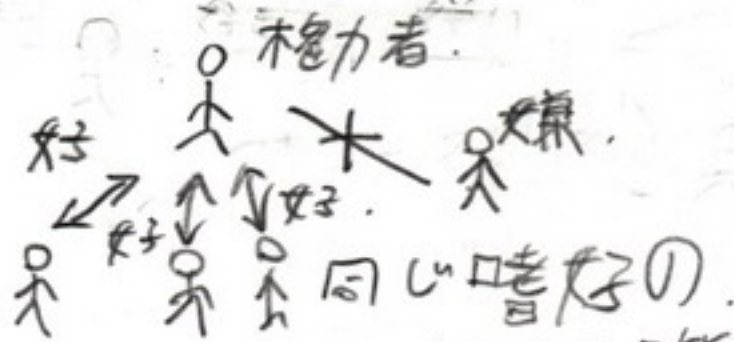 権力者.
嫌.
好
好
好.
同じ嗜好の